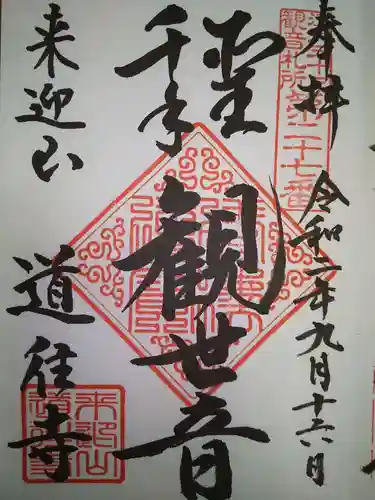 奉拝
令和二年九月十六日
観音札所
第二十七番
聖
千手
観世音
来迎山
道往寺
来迎山
道往寺